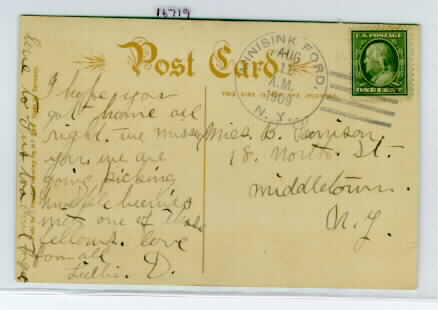 16719
Post Card
MINISINK FORD,
AUG
12
A.M.
1909
N.Y.
U.S. POSTAGE
ONE CENT
I hope you
got home all
right. We miss
you we are
going picking
huckle berries
not one of those
fellows. love
from all
Lillie. D.
Miss B. Tennison
18. North. St.
Middletown.
N.Y.